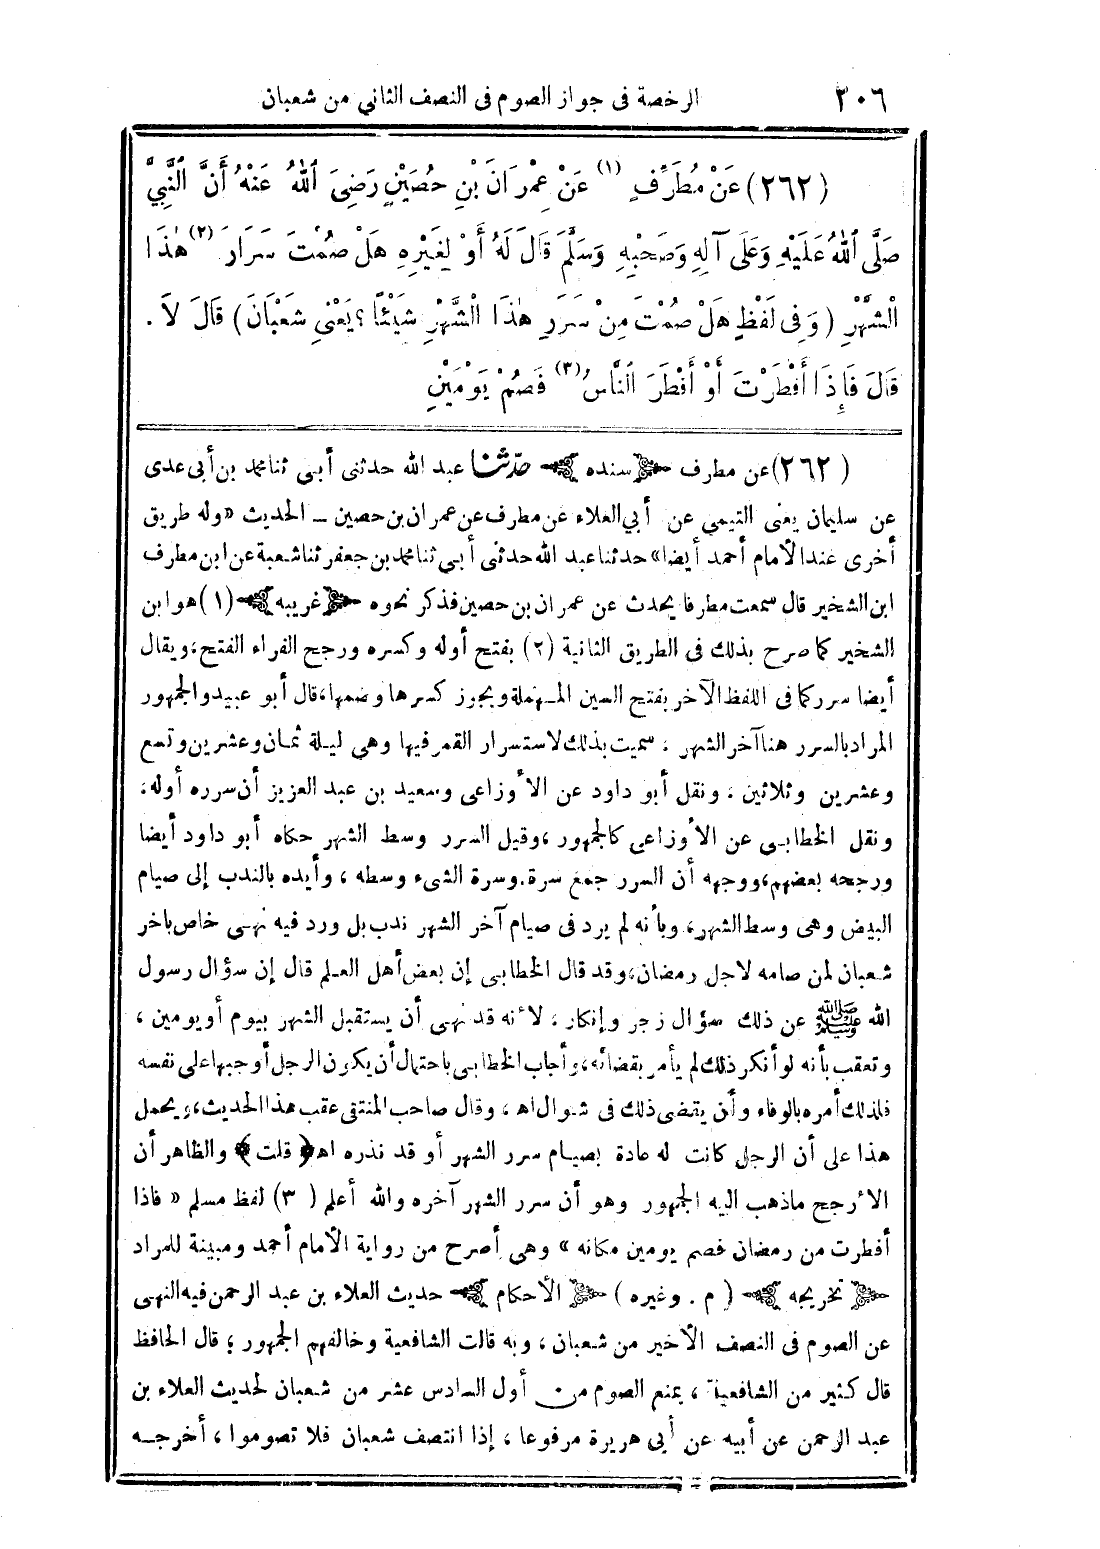 ٢٠٦ الرخصة فى جواز الصوم فى النصف الثاني من شعبان
(٢٦٢) عَنْ مُطَرِّفٍ (١) عَنْ عِمْرَانَ بْنِ حُصَيْنٍ رَضِىَ ٱللهُ عَنْهُ أَنَّ ٱلنَّبِيَّ
صَلَّى ٱللهُ عَلَيْهِ وَعَلَى آلِهِ وَصَحْبِهِ وَسَلَّمَ قَالَ لَهُ أَوْ لِغَيْرِهِ هَلْ صُمْتَ سَرَارَ (٢) هٰذَا
ٱلشَّهْرِ (وَفِى لَفْظٍ هَلْ صُمْتَ مِنْ سَرَرِ هٰذَا ٱلشَّهْرِ شَيْئًا؟ يَعْنِي شَعْبَانَ) قَالَ لَا.
قَالَ فَإِذَا أَفْطَرْتَ أَوْ أَفْطَرَ ٱلنَّاسُ (٣) فَصُمْ يَوْمَيْنِ
(٢٦٢) عن مطرف ﴿سنده﴾ حدّثنا عبد الله حدثنى أبى ثنا محمد بن أبى عدى
عن سليمان يعنى التيمى عن أبي العلاء عن مطرف عن عمران بن حصين ــ الحديث «وله طريق
أخرى عند الأمام أحمد أيضا» حدثنا عبد الله حدثنى أبى ثنا محمد بن جعفر ثنا شعبة عن ابن مطرف
ابن الشخير قال سمعت مطرفا يحدث عن عمران بن حصين فذكر نحوه ﴿غريبه﴾ (١) هو ابن
الشخير كما صرح بذلك فى الطريق الثانية (٢) بفتح أوله وكسره ورجح الفراء الفتح، ويقال
أيضا سرر كما فى اللفظ الآخر بفتح السين المهملة ويجوز كسرها وضمها، قال أبو عبيد والجمهور
المراد بالسرر هنا آخر الشهر، سميت بذلك لاستسرار القمر فيها وهى ليلة ثمان وعشرين وتسع
وعشرين وثلاثين، ونقل أبو داود عن الأوزاعى وسعيد بن عبد العزيز أن سرره أوله،
ونقل الخطابى عن الأوزاعى كالجمهور، وقيل السرر وسط الشهر حكاه أبو داود أيضا
ورجحه بعضهم، ووجهه أن السرر جمع سرة. وسرة الشىء وسطه، وأيده بالندب إلى صيام
البيض وهى وسط الشهر، وبأنه لم يرد فى صيام آخر الشهر ندب بل ورد فيه نهى خاص بآخر
شعبان لمن صامه لاجل رمضان، وقد قال الخطابى إن بعض أهل العلم قال إن سؤال رسول
الله ﷺ عن ذلك سؤال زجر وإنكار، لأنه قد نهى أن يستقبل الشهر بيوم أو يومين،
وتعقب بأنه لو أنكر ذلك لم يأمر بقضائه، وأجاب الخطابى باحتمال أن يكون الرجل أوجبها على نفسه
فلذلك أمره بالوفاء وأن يقضى ذلك فى شوال اه، وقال صاحب المنتقى عقب هذا الحديث، ويحمل
هذا على أن الرجل كانت له عادة بصيام سرر الشهر أو قد نذره اه ﴿قلت﴾ والظاهر أن
الأرجح ما ذهب اليه الجمهور وهو أن سرر الشهر آخره والله أعلم (٣) لفظ مسلم « فاذا
أفطرت من رمضان فصم يومين مكانه » وهى أصرح من رواية الأمام أحمد ومبينة للمراد
﴿تخريجه﴾ (م. وغيره) ﴿الأحكام﴾ حديث العلاء بن عبد الرحمن فيه النهى
عن الصوم فى النصف الأخير من شعبان، وبه قالت الشافعية وخالفهم الجمهور؛ قال الحافظ
قال كثير من الشافعية، يمنع الصوم من أول السادس عشر من شعبان لحديث العلاء بن
عبد الرحمن عن أبيه عن أبى هريرة مرفوعا، إذا انتصف شعبان فلا تصوموا، أخرجه